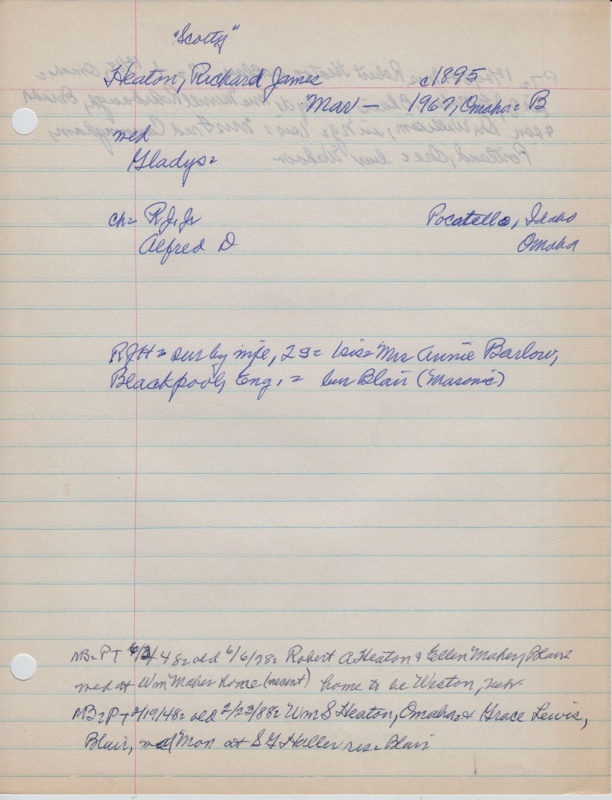 "Scotty"
Heaton, Richard James c1895
Mar — 1967, Omaha = B
wed
Gladys =
ch = R.J. Jr Pocatello, Idaho
Alfred D Omaha
RJH = sur by wife, 2 s = 1 sis = Mrs Annie Barlow,
Blackpool, Eng. = bur Blair (Masonic)
MB = PT 48 = old 6/6/78 = Robert A Heaton & Ellen Maher, Blair =
wed at Wm Maher home (recent) home to be Weston,
MB = PT 2/19/48 = old 2/23/88 = Wm S Heaton, Omaha = & Grace Lewis,
Blair, wed Mon at S F Haller res = Blair